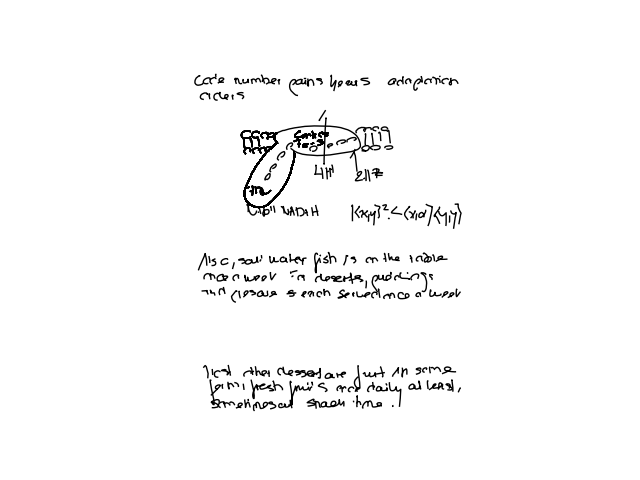 Code number pains hours adaptation
4H⁺
2H⁺
NADH
|⟨x,y⟩|² ≤ ⟨x,x⟩⟨y,y⟩
Also, salt water fish is on the table
once a week. For desserts, puddings
and are each served once a week
Most other dessert are fruit in some
form, fresh fruits once daily at least,
sometimes at snack time.